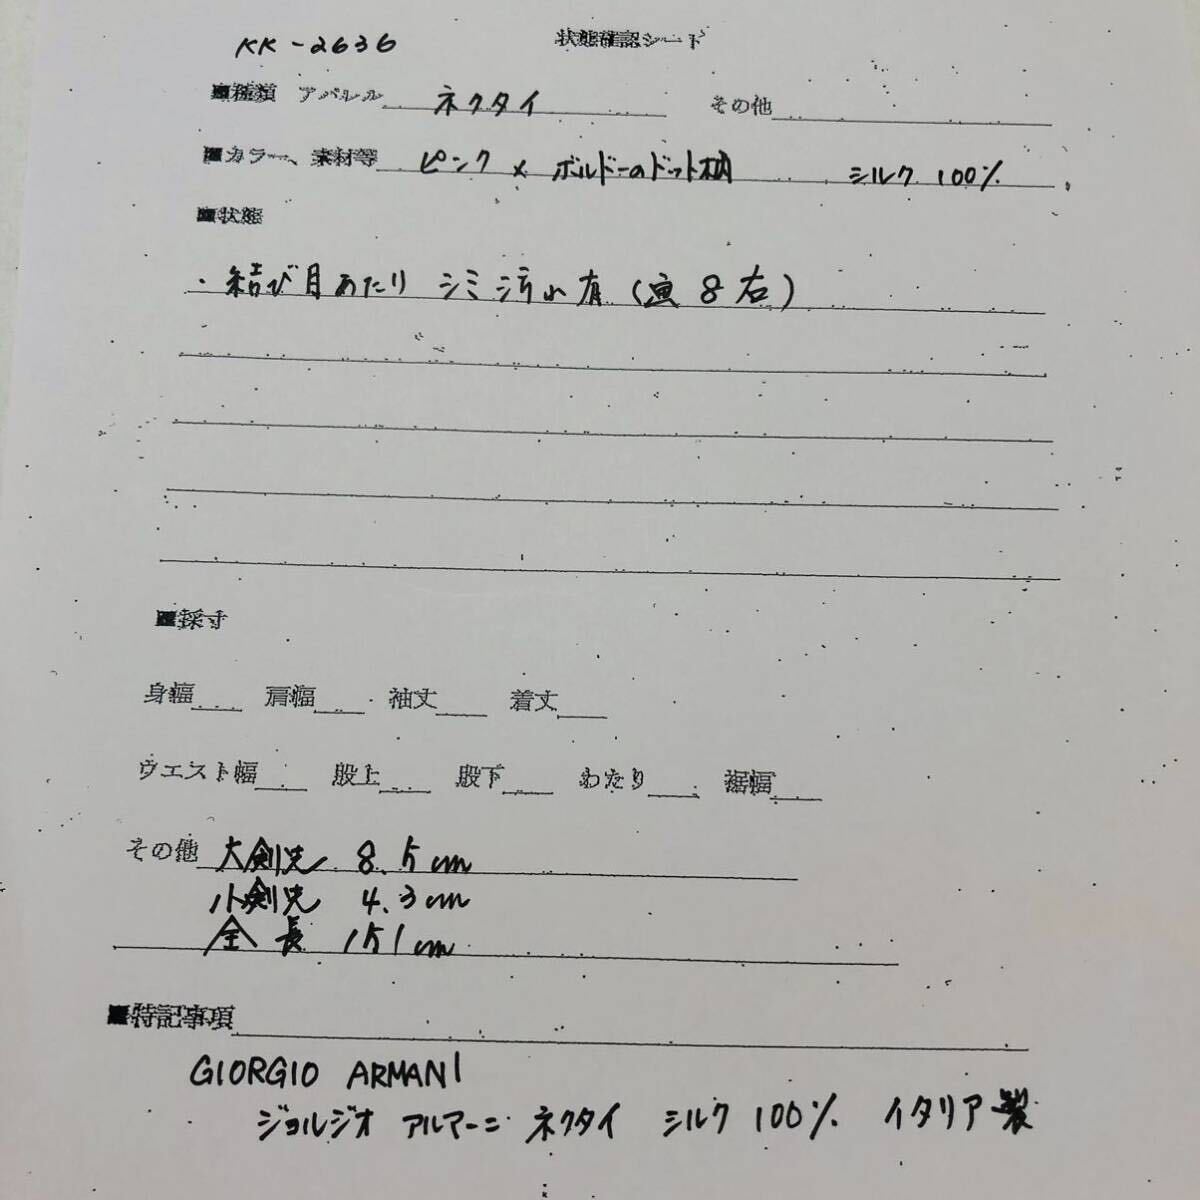 KK-2636
状態確認シート
■種類 アパレル ネクタイ その他
■カラー、素材等 ピンク×ボルドーのドット柄 シルク 100%
■状態
・結び目あたり シミ汚れ有(画8右)
■採寸
身幅 肩幅 袖丈 着丈
ウエスト幅 股上 股下 わたり 裾幅
その他 大剣先 8.5cm
小剣先 4.3cm
全長 151cm
■特記事項
GIORGIO ARMANI
ジョルジオ アルマーニ ネクタイ シルク 100% イタリア製